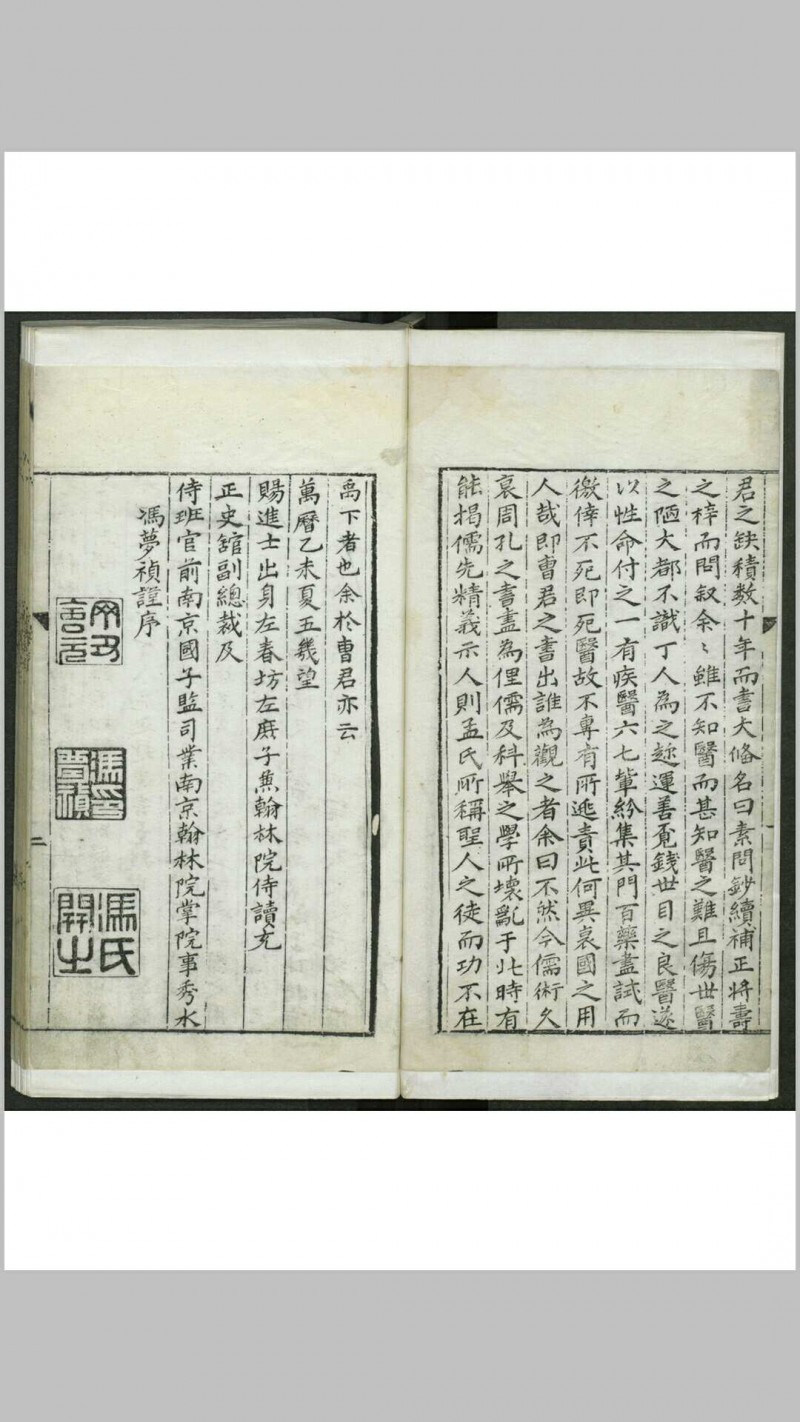 君之缺積数十年而書大俻名曰素問鈔續補正将壽
之梓而問叙余〻雖不知醫而甚知醫之難且傷世醫
之陋大都不識丁人為之迩運善覓錢世目之良醫遂
以性命付之一有疾醫六七軰紛集其門百藥盡試而
徼倖不死即死醫故不專有所逃責此何異哀國之用
人哉即曹君之書出誰為觀之者余曰不然今儒術久
衰周孔之書盡為俚儒及科舉之學所壞亂于此時有
能掲儒先精義示人則孟氏所稱聖人之徒而功不在
禹下者也余於曹君亦云
萬曆乙未夏五幾望
賜進士出身左春坊左庶子兼翰林院侍讀充
正史舘副總裁及
侍班官前南京國子監司業南京翰林院掌院事秀水
馮夢禎謹序
會元
馮夢禎印
馮氏開之
二